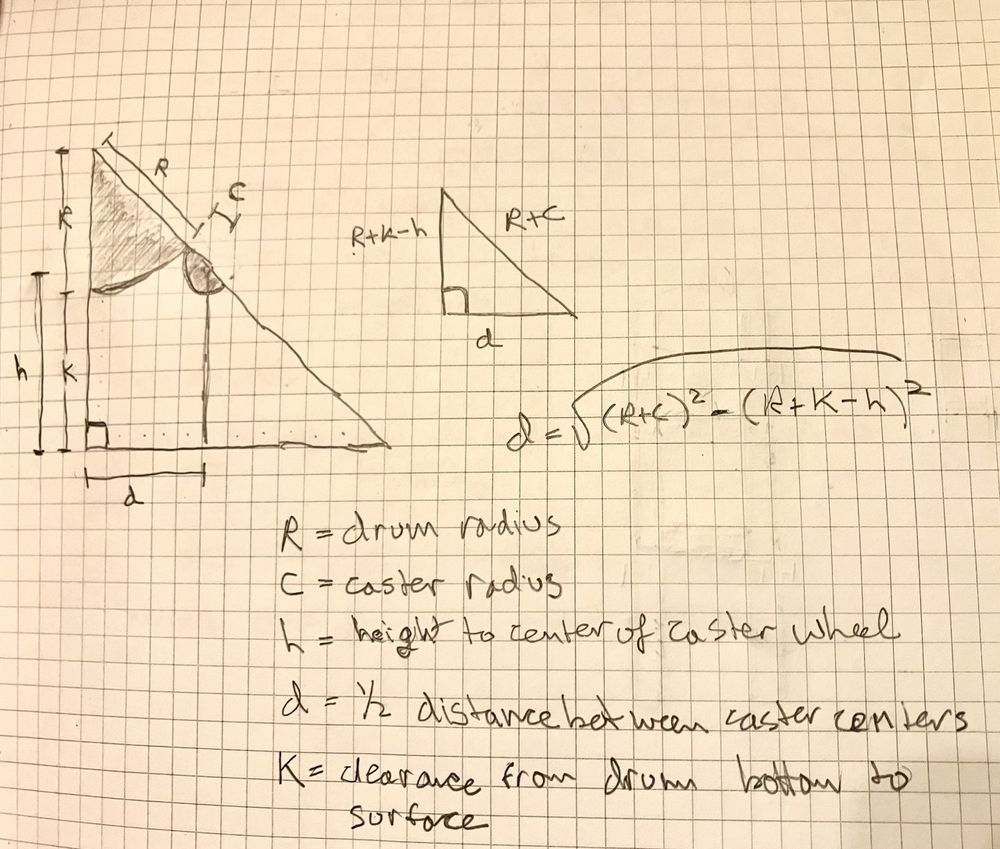 R
C
R
h
K
d
R+K-h
R+C
d
d = √(R+C)² - (R+K-h)²
R = drum radius
C = caster radius
h = height to center of caster wheel
d = 1/2 distance between caster centers
K = clearance from drum bottom to
surface